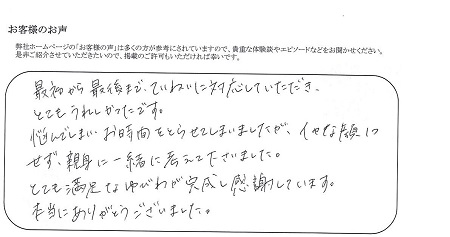 お客様のお声
弊社ホームページの「お客様の声」は多くの方が参考にされていますので、貴重な体験談やエピソードなどをお聞かせください。
是非ご紹介させていただきたいので、掲載のご許可もいただければ幸いです。
最初から最後まで、ていねいに対応していただき、
とてもうれしかったです。
悩んでしまいお時間をとらせてしまいましたが、イヤな顔1つ
せず、親身に一緒に考えて下さいました。
とても満足なゆびわが完成し感謝しています。
本当にありがとうございました。